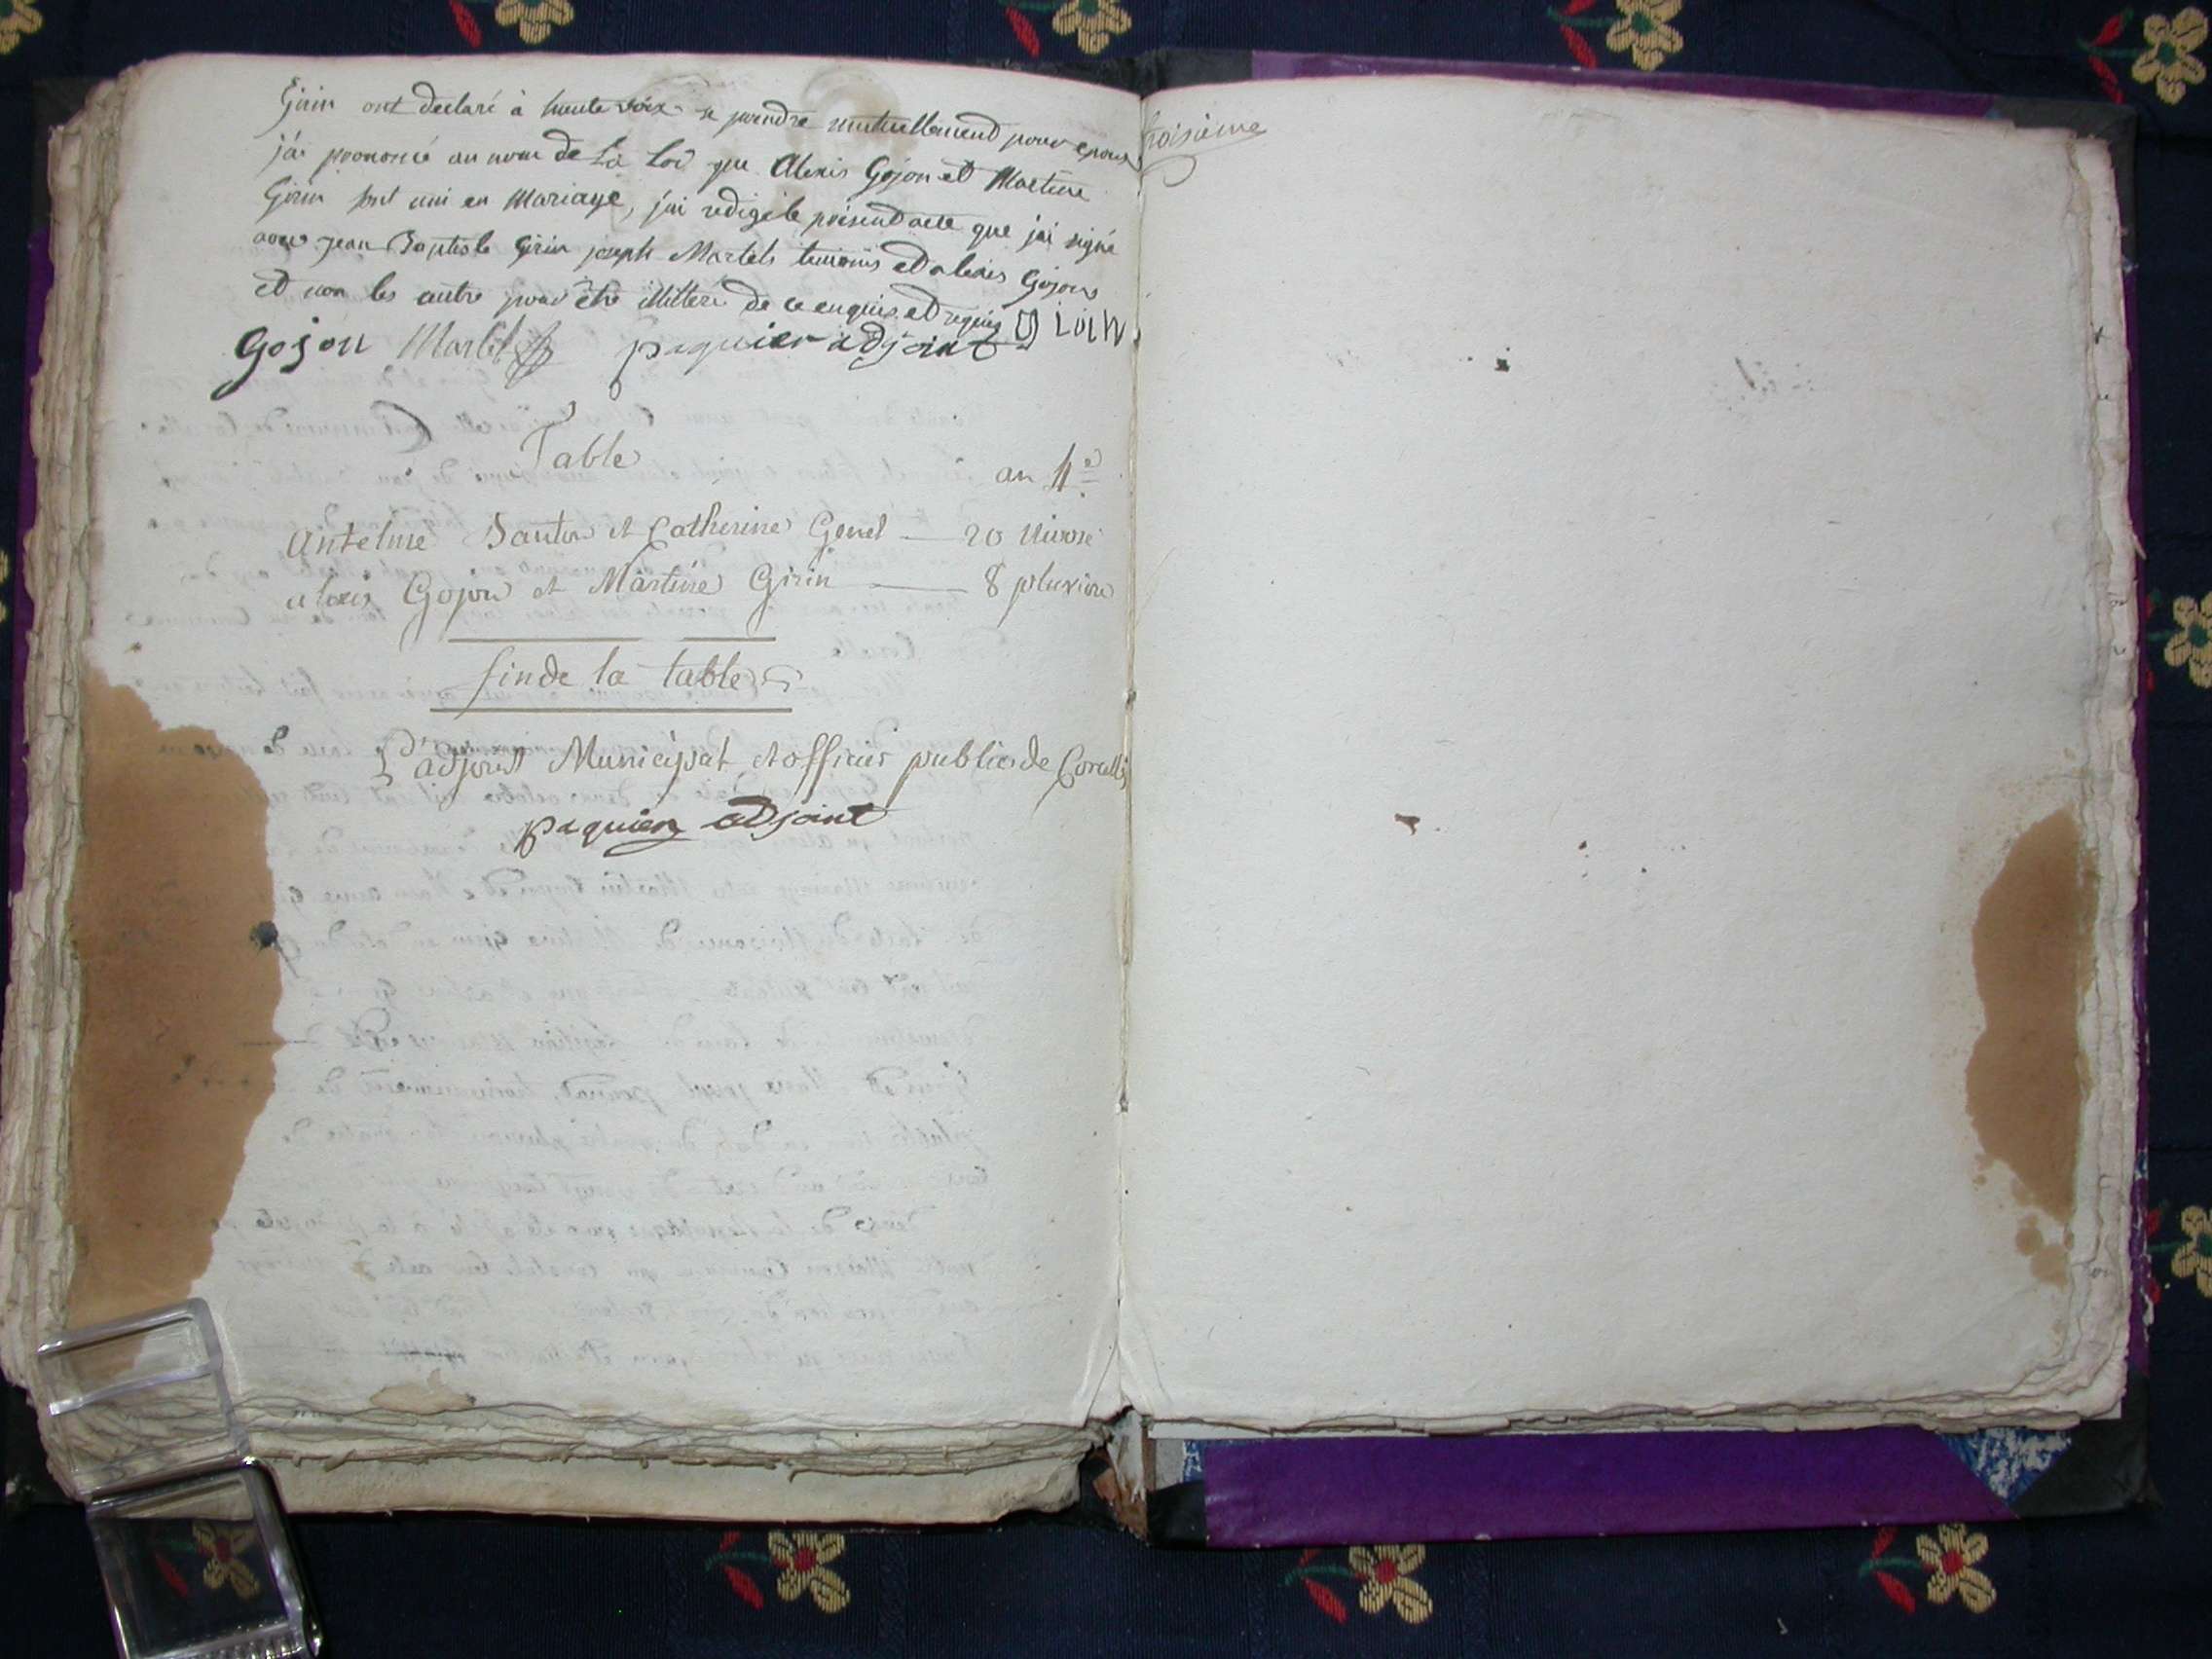 Girin ont declaré à haute voix se prendre mutuellement pour epoux
j'ai prononcé au nom de La Loi que Alexis Gojon et Martine
Girin sont uni en Mariage, j'ai redigé le présent acte que j'ai signé
avec Jean Baptiste Girin joseph Martels temoins et alexis Gojon
et non les autre pour être illiteré de ce enquis et requis
Gojon Martel paquier adjoint GiRiN
troisième
Table
an 4e
Antelme et Catherine Genet — 20 Nivose
alexis Gojon et Martine Girin — 8 pluviose
fin de la table
adjoint Municipal et officier public de Corcelles
paquier adjoint